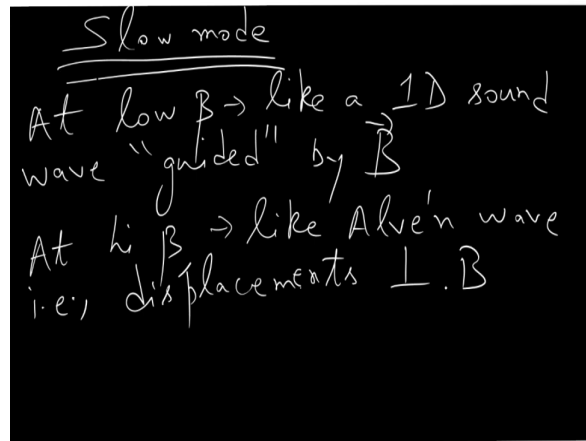 Slow mode
At low β → like a 1D sound
wave "guided" by B⃗
At hi β → like Alve'n wave
i.e., displacements ⊥. B